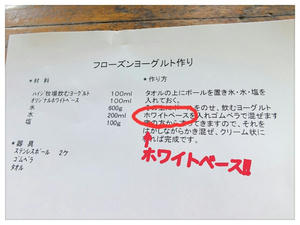 フローズンヨーグルト作り
*材料
ハイジ牧場飲むヨーグルト 100ml
オリジナルホワイトベース 100ml
氷 600g
水 200ml
塩 100g
*器具
ステンレスボール 2ケ
ゴムベラ
タオル
*作り方
タオルの上にボールを置き氷・水・塩を
入れておく。
その上にボールをのせ、飲むヨーグルト
ホワイトベースを入れゴムベラで混ぜます
ってきますので、それを
はがしながらかき混ぜ、クリーム状に
なれば完成です。
ホワイトベース!!